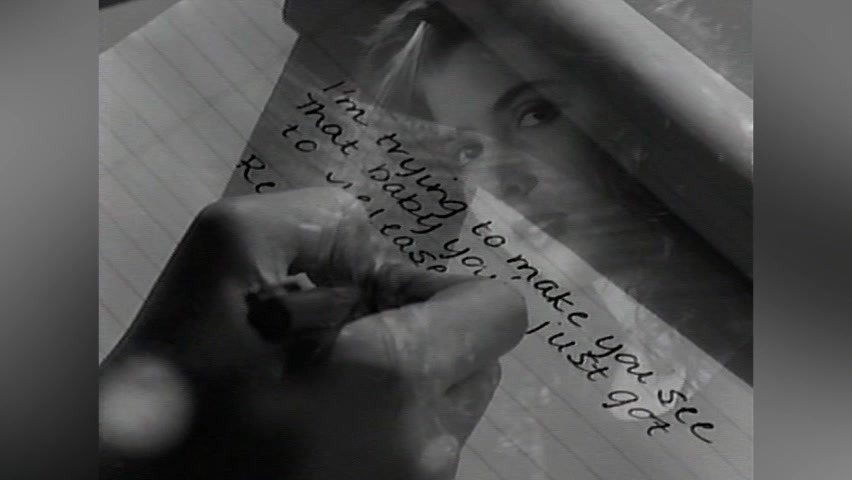 I'm trying to make you see
that baby you just got
to release
Re